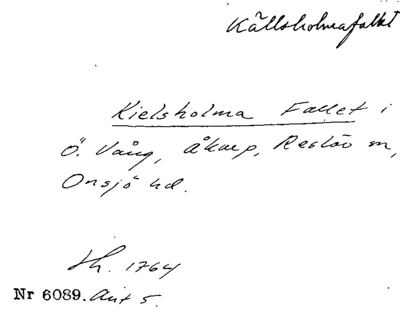 Källsholmafallet
Kielsholma Fallet i
Ö. Vång, Åkarp, Reslöv sn,
Onsjö hd.
Hh. 1764
Nr 6089. Akt 5.